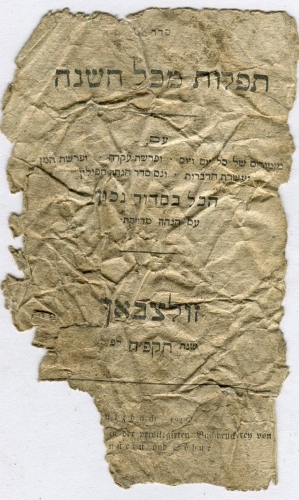 סדר
תפלות מכל השנה
עם
מזמורים של כל יום ויום · ופרשת עקדה · ופרשת המן
ועשרת הדברות · וגם סדר הנחת תפילין
הכל בסדור נכון
עם הגהה מדויקת
זולצבאך
שנת תקפ״ח לפ״ק
ulzbach
in der privilegirten Buchdruckerey von
und Söhne